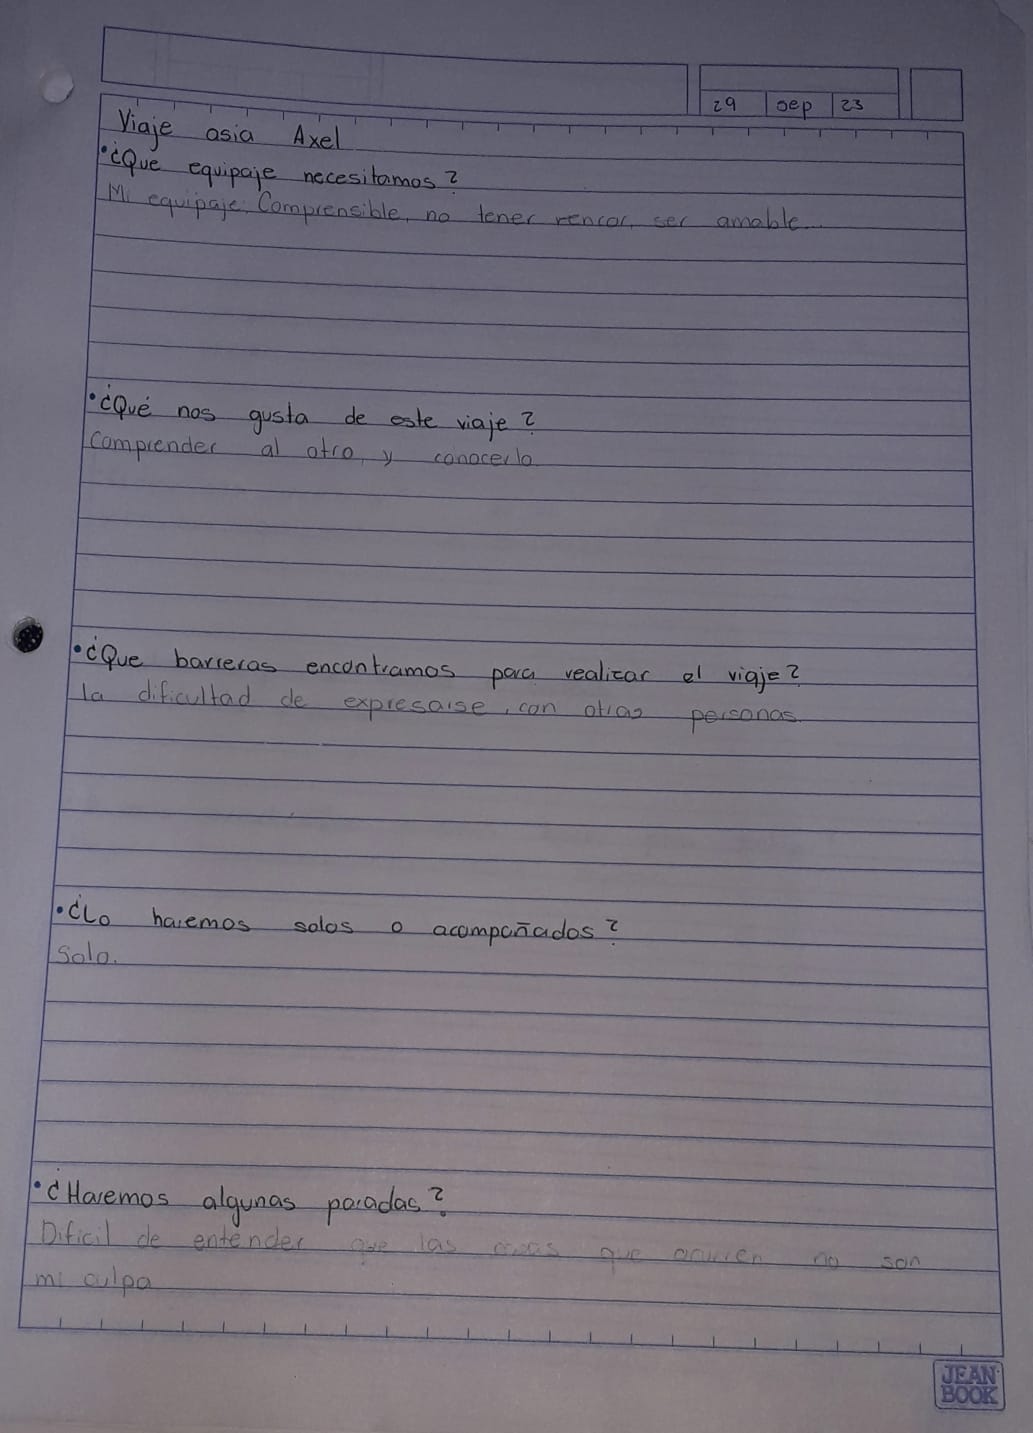 29 sep 23
Viaje asia Axel
•¿Que equipaje necesitamos?
Mi equipaje; Comprensible, no tener rencor, ser amable...
•¿Qué nos gusta de este viaje?
Comprender al otro, y conocerlo
•¿Que barreras encontramos para realizar el viaje?
La dificultad de expresarse, con otras personas.
•¿Lo haremos solos o acompañados?
Solo.
•¿Haremos algunas paradas?
Dificil de entender que las cosas que ocurren no son
mi culpa
JEAN
BOOK